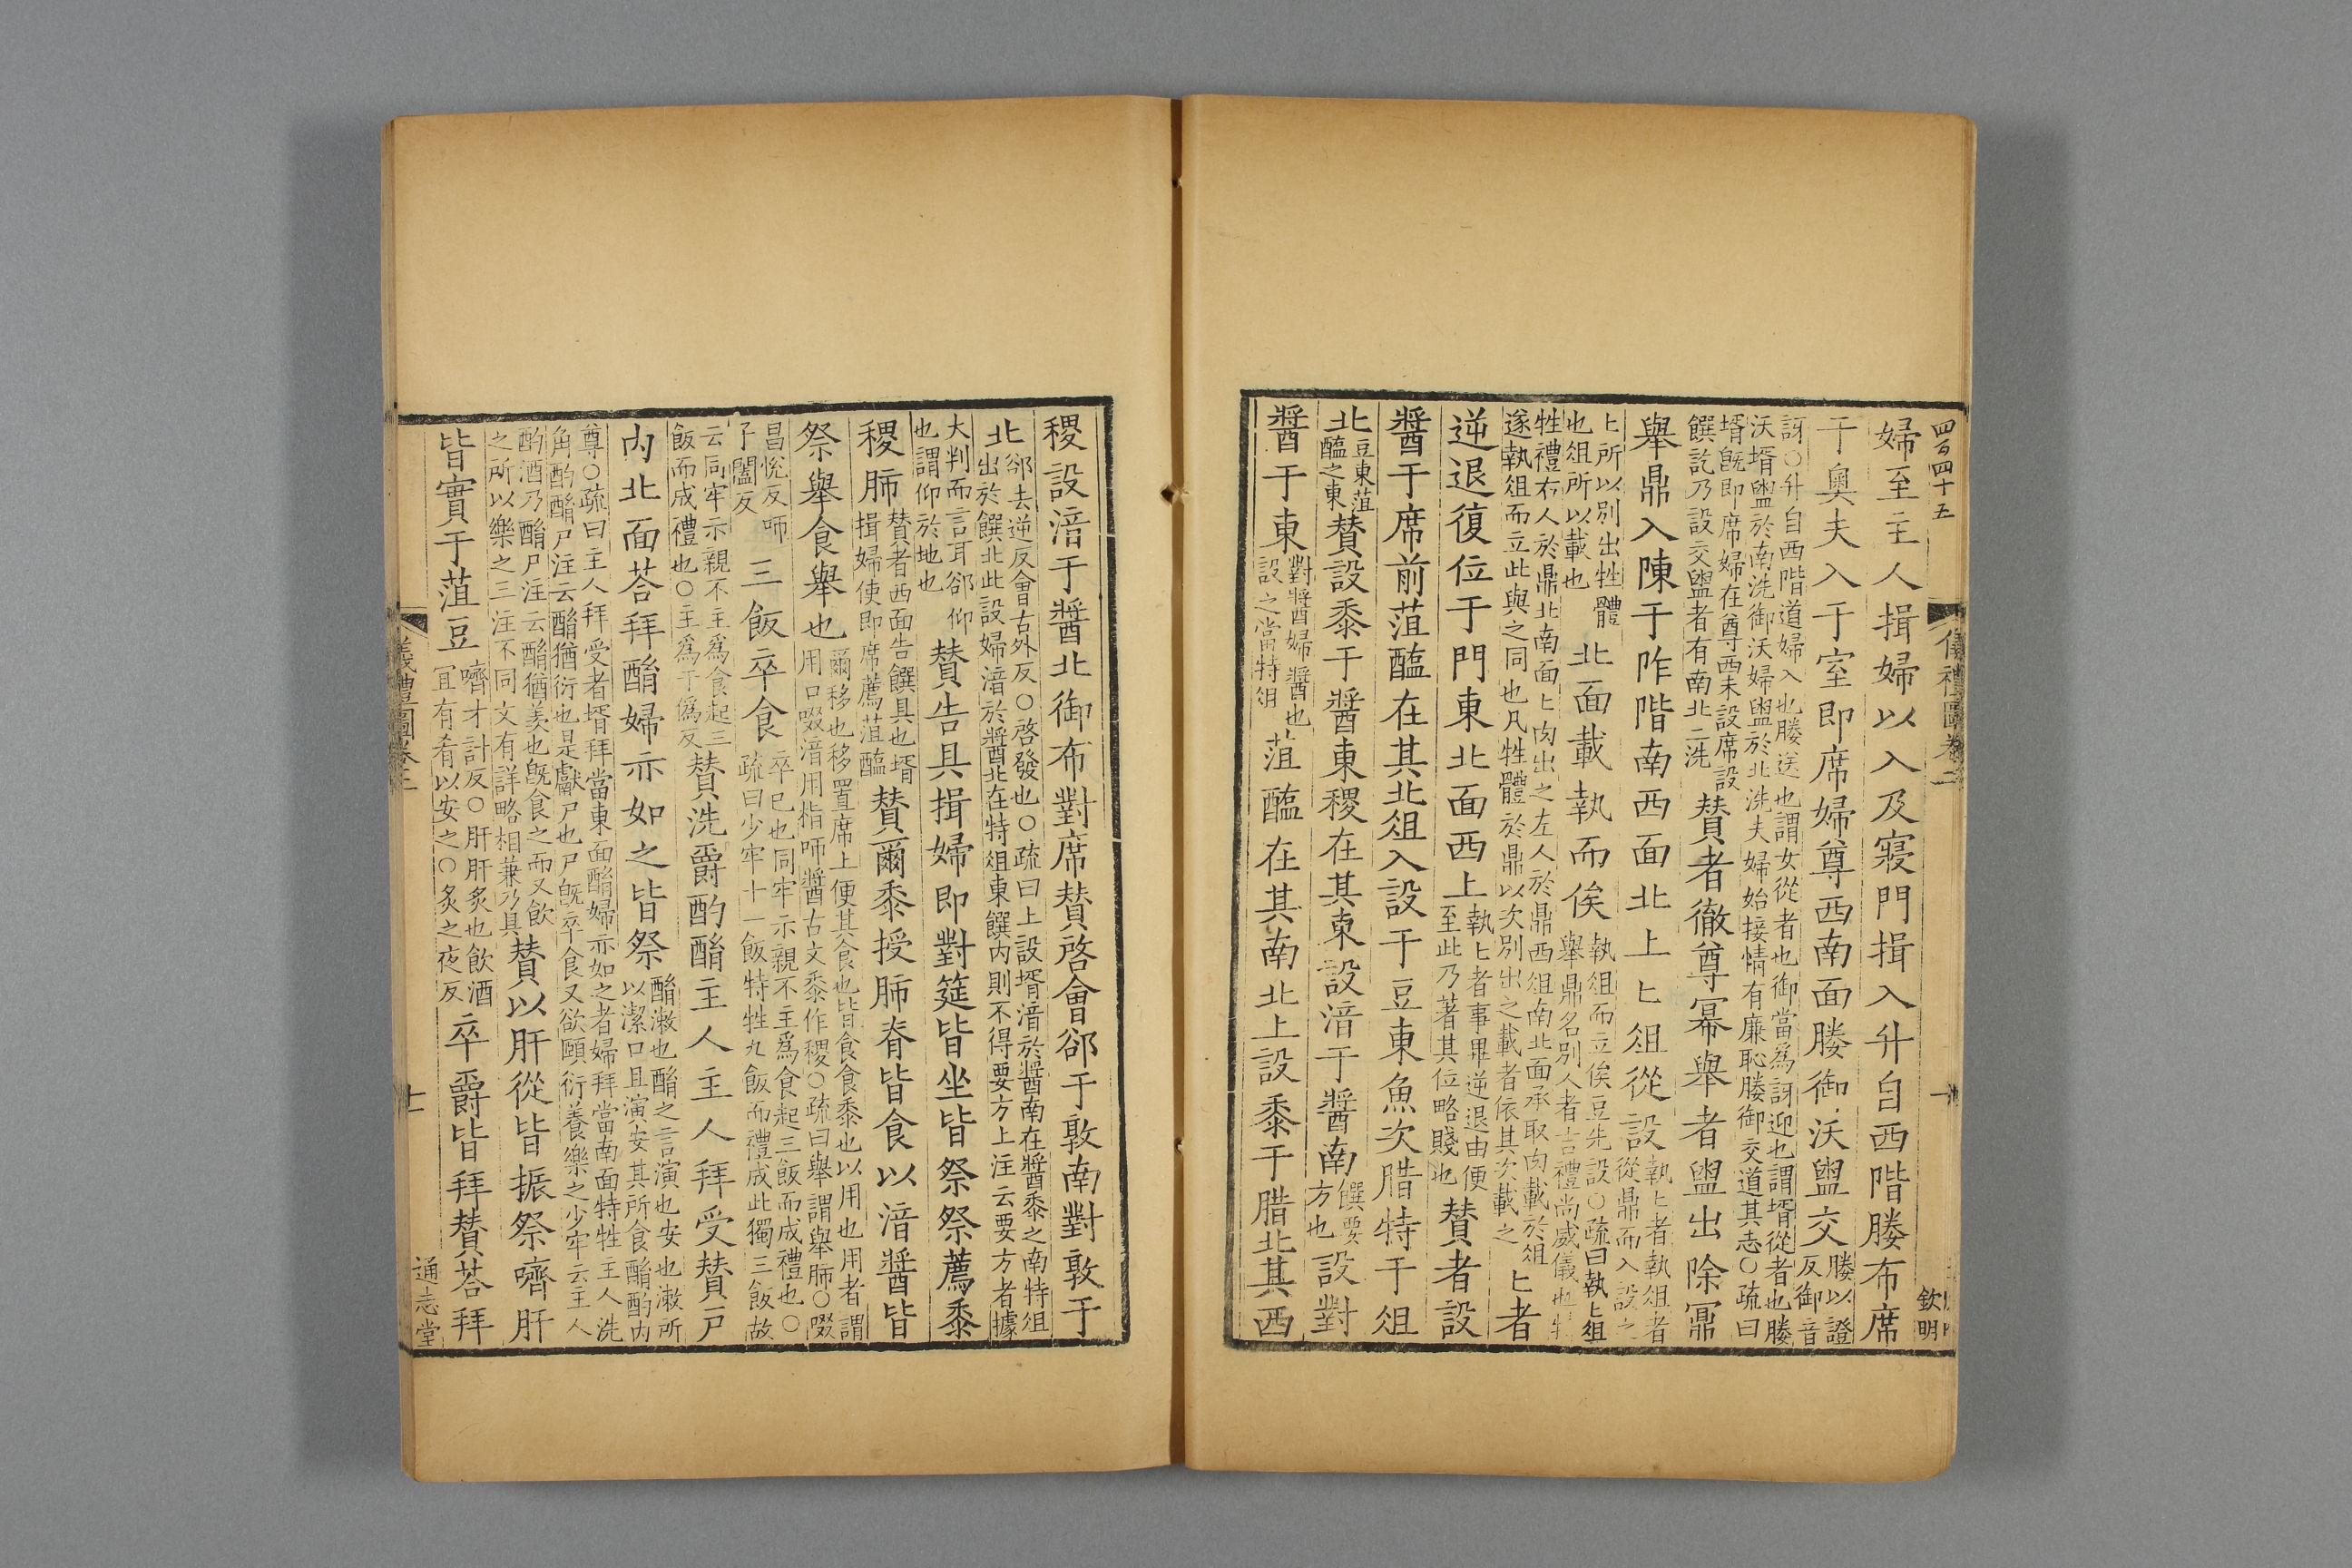 四百四十五
儀禮圖卷二
欽明
婦至主人揖婦以入及寢門揖入升自西階媵布席
于奧夫入于室即席婦尊西南面媵御沃盥交媵以證反御音
訝○升自西階道婦入也媵送也謂女從者也御當爲訝迎也謂壻從者也媵
沃壻盥於南洗御沃婦盥於北洗夫婦始接情有廉恥媵御交道其志○疏曰
壻旣即席婦在尊西未設席設
饌訖乃設交盥者有南北二洗贊者徹尊冪舉者盥出除鼏
舉鼎入陳于阼階南西面北上匕俎從設執匕者執俎者從鼎而入設之
匕所以別出牲體也俎所以載也北面載執而俟執俎而立俟豆先設○疏曰執匕俎舉鼎各別人者吉禮尚威儀也特
牲禮右人於鼎北南面匕肉出之左人於鼎西俎南北面承取肉載於俎
遂執俎而立此與之同也凡牲體於鼎以次別出之載者依其次載之匕者
逆退復位于門東北面西上執匕者事畢逆退由便至此乃著其位略賤也贊者設
醬于席前菹醢在其北俎入設于豆東魚次腊特于俎
北豆東菹醢之東贊設黍于醬東稷在其東設湆于醬南饌要方也設對
醬于東對醬婦醬也設之當特俎菹醢在其南北上設黍于腊北其西
稷設湆于醬北御布對席贊啓會郤于敦南對敦于
北郤去逆反會古外反○啓發也○疏曰上設壻湆於醬南在醬黍之南特俎
出於饌北此設婦湆於醬北在特俎東饌内則不得要方上注云要方者據
大判而言耳郤仰也謂仰於地也贊告具揖婦即對筵皆坐皆祭祭薦黍
稷肺贊者西面告饌具也壻揖婦使即席薦菹醢贊爾黍授肺脊皆食以湆醬皆
祭舉食舉也爾移也移置席上便其食也皆食食黍也以用也用者謂
用口啜湆用指咂醬古文黍作稷○疏曰舉謂舉肺○啜
昌悅反咂子闔反三飯卒食卒已也同牢示親不主爲食起三飯而成禮也○
疏曰少牢十一飯特牲九飯而禮成此獨三飯故
云同牢示親不主爲食起三飯而成禮也○主爲于僞反贊洗爵酌酳主人主人拜受贊戶
内北面荅拜酳婦亦如之皆祭酳漱也酳之言演也安也漱所以潔口且演安其所食酳酌内
尊○疏曰主人拜受者壻拜當東面酳婦亦如之者婦拜當南面特牲主人洗
角酌酳尸注云酳猶衍也是獻尸也尸旣卒食又欲頤衍養樂之少牢云主人
酌酒乃酳尸注云酳猶羨也旣食之而又飲
之所以樂之三注不同文有詳略相兼乃具贊以肝從皆振祭嚌肝
皆實于菹豆嚌才計反○肝肝炙也飲酒宜有肴以安之○炙之夜反卒爵皆拜贊荅拜
儀禮圖卷二
十一
通志堂